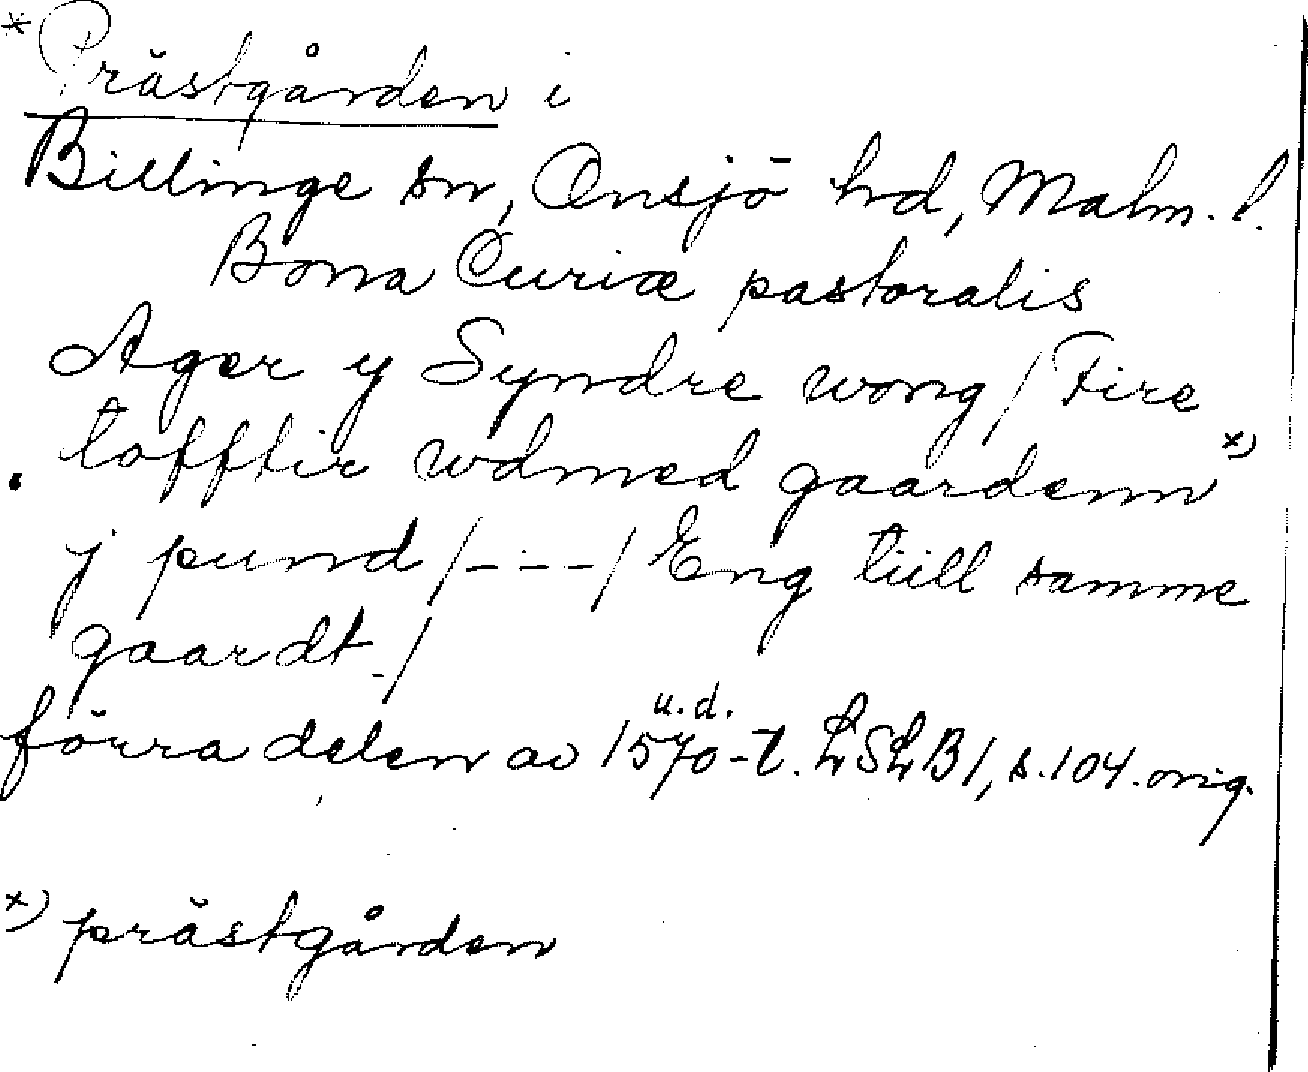 * Prästgården i
Billinge sn, Onsjö hd, Malm. l.
Bona Curiæ pastoralis
Ager y Syndre wong / Fire
tofftir wdmed gaardenn x)
j pund /---/ Eng tiill samme
gaardt /
förra delen av 1570-t. u.d. LSLB1, s.104. orig.
x) prästgården